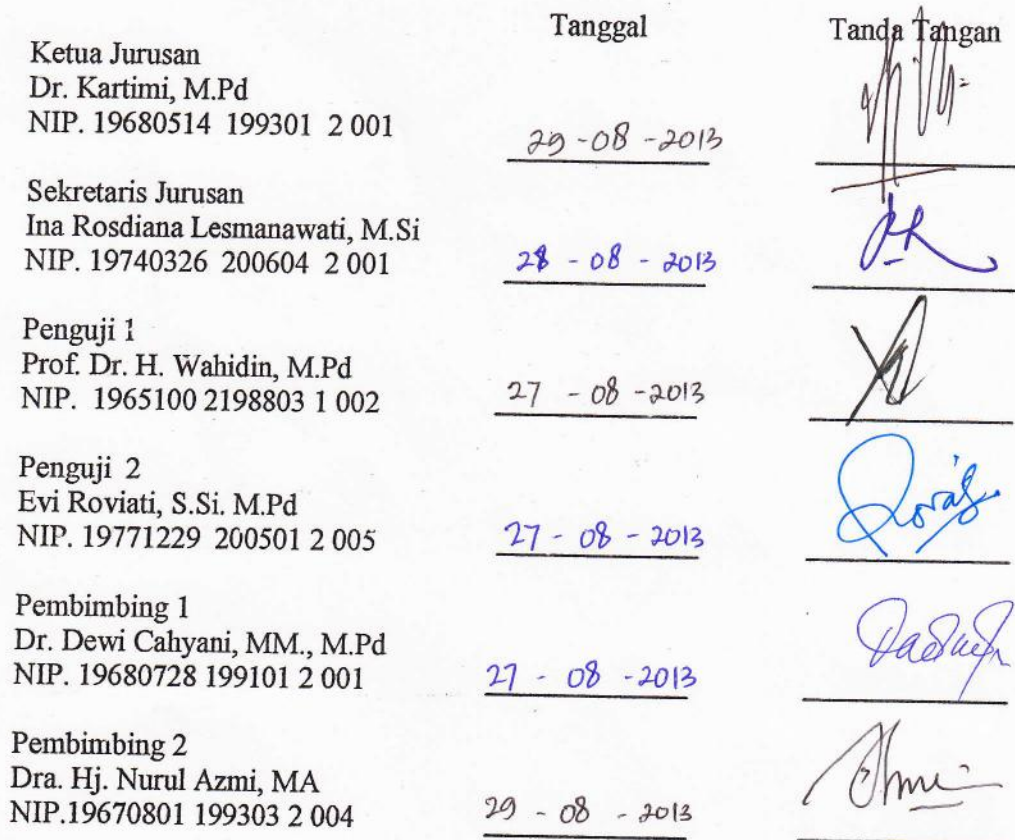 Tanggal Tanda Tangan
Ketua Jurusan
Dr. Kartimi, M.Pd
NIP. 19680514 199301 2 001 29-08-2013
Sekretaris Jurusan
Ina Rosdiana Lesmanawati, M.Si
NIP. 19740326 200604 2 001 28 - 08 - 2013
Penguji 1
Prof. Dr. H. Wahidin, M.Pd
NIP. 1965100 2198803 1 002 27 - 08 -2013
Penguji 2
Evi Roviati, S.Si. M.Pd
NIP. 19771229 200501 2 005 27 - 08 - 2013
Pembimbing 1
Dr. Dewi Cahyani, MM., M.Pd
NIP. 19680728 199101 2 001 27 - 08 -2013
Pembimbing 2
Dra. Hj. Nurul Azmi, MA
NIP.19670801 199303 2 004 29 - 08 - 2013